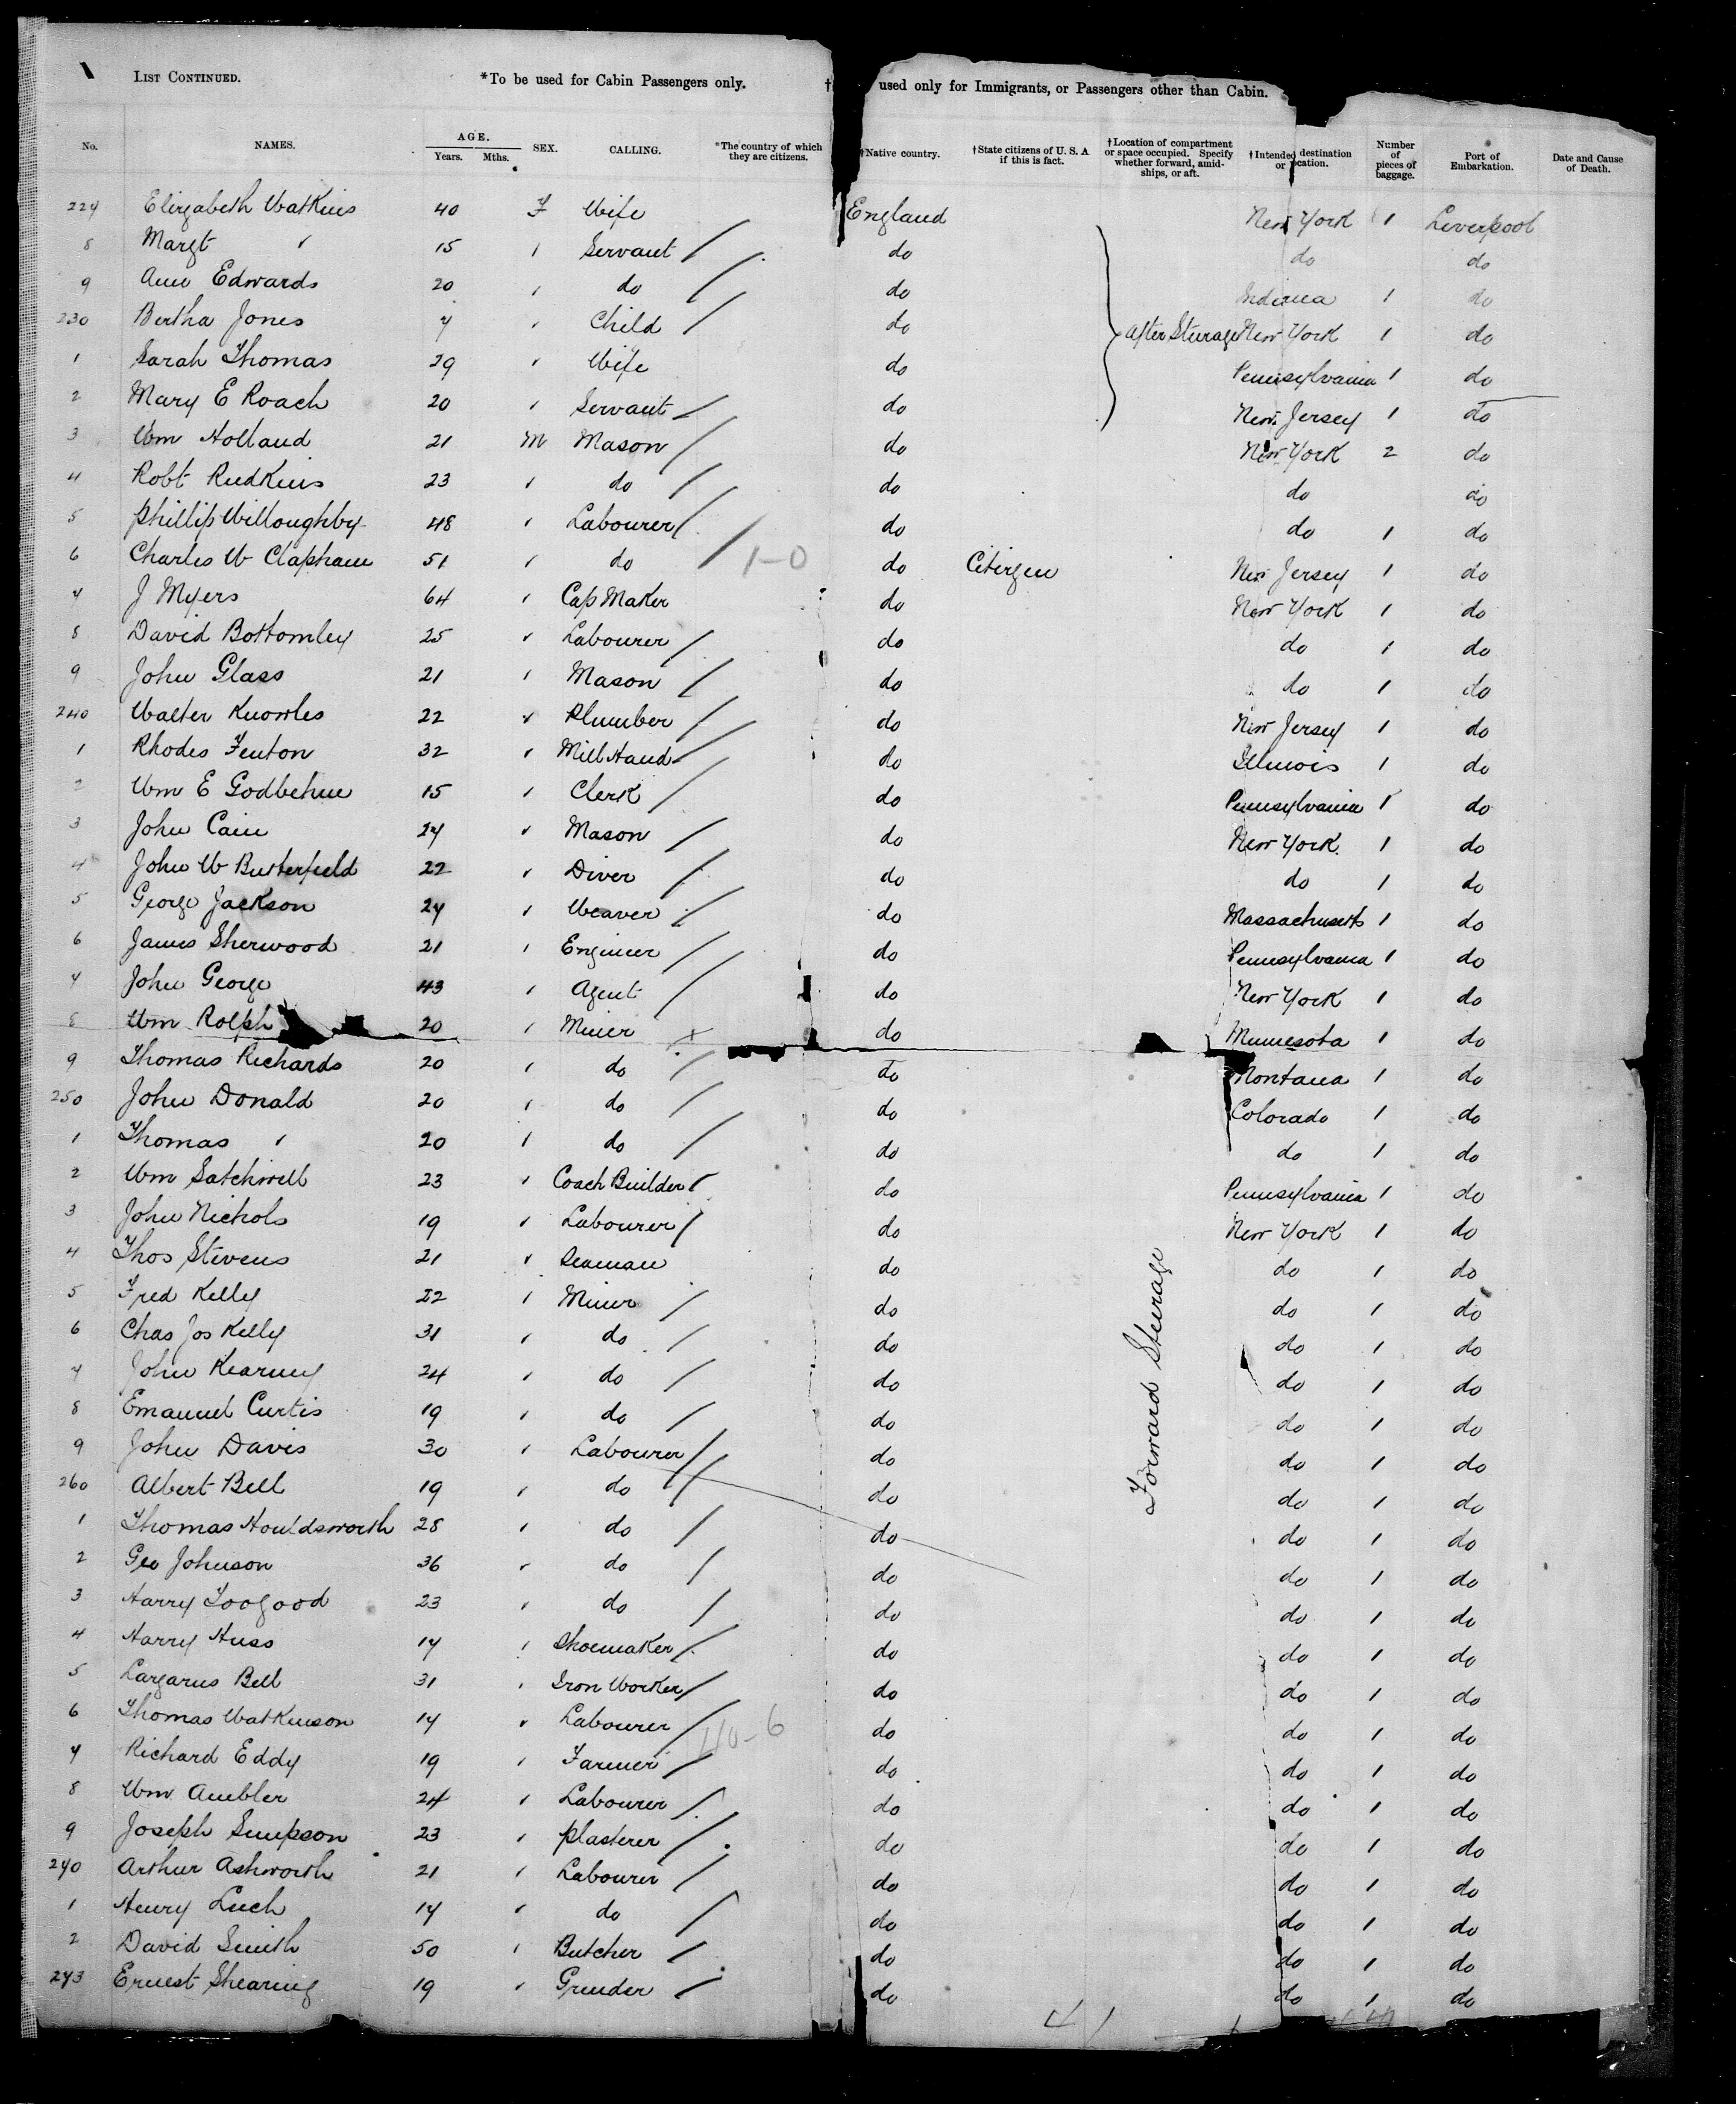 LIST CONTINUED. *To be used for Cabin Passengers only. † used only for Immigrants, or Passengers other than Cabin.
No. NAMES. AGE. Years. Mths. SEX. CALLING. *The country of which they are citizens. †Native country. †State citizens of U. S. A if this is fact. †Location of compartment or space occupied. Specify whether forward, amid-ships, or aft. †Intended destination or location. Number of pieces of baggage. Port of Embarkation. Date and Cause of Death.
227 Elizabeth Watkins 40 F Wife England New York 1 Liverpool
8 Margt " 15 " Servant / do do do
9 Ann Edwards 20 " do / do Indiana 1 do
230 Bertha Jones 7 " Child / do After Sturage New York 1 do
1 Sarah Thomas 29 " Wife do Pennsylvania 1 do
2 Mary E Roach 20 " Servant / do New Jersey 1 do
3 Wm Holland 21 M Mason / do New York 2 do
4 Robt Rudkins 23 " do / do do do
5 Phillip Willoughby 48 " Labourer / do do 1 do
6 Charles W Clapham 51 " do / 1-0 do Citizen New Jersey 1 do
7 J Myers 64 " Cap Maker do New York 1 do
8 David Bottomley 25 " Labourer / do do 1 do
9 John Glass 21 " Mason / do do 1 do
240 Walter Knowles 22 " Plumber / do New Jersey 1 do
1 Rhodes Fenton 32 " Mill Hand / do Illinois 1 do
2 Wm E Godbehue 15 " Clerk / do Pennsylvania 1 do
3 John Cain 27 " Mason / do New York 1 do
4 John W Butterfield 22 " Diver / do do 1 do
5 George Jackson 27 " Weaver / do Massachusetts 1 do
6 James Sherwood 21 " Engineer / do Pennsylvania 1 do
7 John George 43 " Agent / do New York 1 do
8 Wm Rolph 20 " Miner x do Minnesota 1 do
9 Thomas Richards 20 " do / do Montana 1 do
250 John Donald 20 " do / do Colorado 1 do
1 Thomas " 20 " do / do do 1 do
2 Wm Satchwell 23 " Coach Builder / do Pennsylvania 1 do
3 John Nichols 19 " Labourer / do New York 1 do
4 Thos Stevens 21 " Seaman do do 1 do
5 Fred Kelly 22 " Miner / do do 1 do
6 Chas Jos Kelly 31 " do / do do 1 do
7 John Kearney 24 " do / do do 1 do
8 Emanuel Curtis 19 " do / do do 1 do
Forward Sturage
9 John Davis 30 " Labourer / do do 1 do
260 Albert Bell 19 " do / do do 1 do
1 Thomas Houldsworth 28 " do / do do 1 do
2 Geo Johnson 36 " do / do do 1 do
3 Harry Toogood 23 " do / do do 1 do
4 Harry Huss 17 " Shoemaker / do do 1 do
5 Lazarus Bell 31 " Iron Worker / do do 1 do
6 Thomas Watkinson 17 " Labourer / 40-6 do do 1 do
7 Richard Eddy 19 " Farmer / do do 1 do
8 Wm Ambler 24 " Labourer / do do 1 do
9 Joseph Simpson 23 " Plasterer / do do 1 do
270 Arthur Ashworth 21 " Labourer / do do 1 do
1 Henry Luch 17 " do / do do 1 do
2 David Smith 50 " Butcher / do do 1 do
273 Ernest Shearing 19 " Grinder / do do 1 do
41